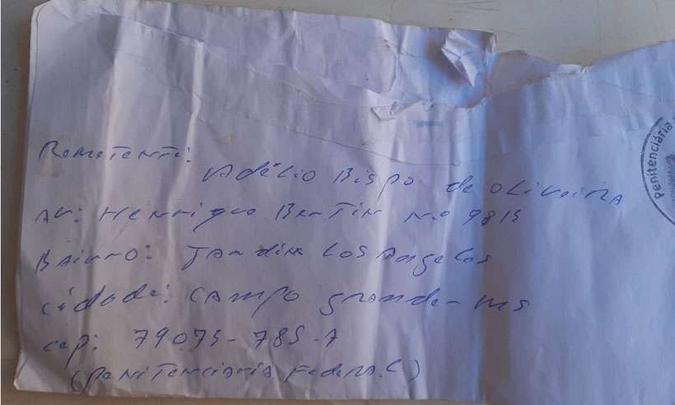 Remetente:
Adélio Bispo de Oliveira
AV: Henrique Bertin N.o 9815
Bairro: Jardim Los Angeles
Cidade: Campo grande-MS
cep: 79075-785-7
(Penitenciaria Federal)
Penitenciária